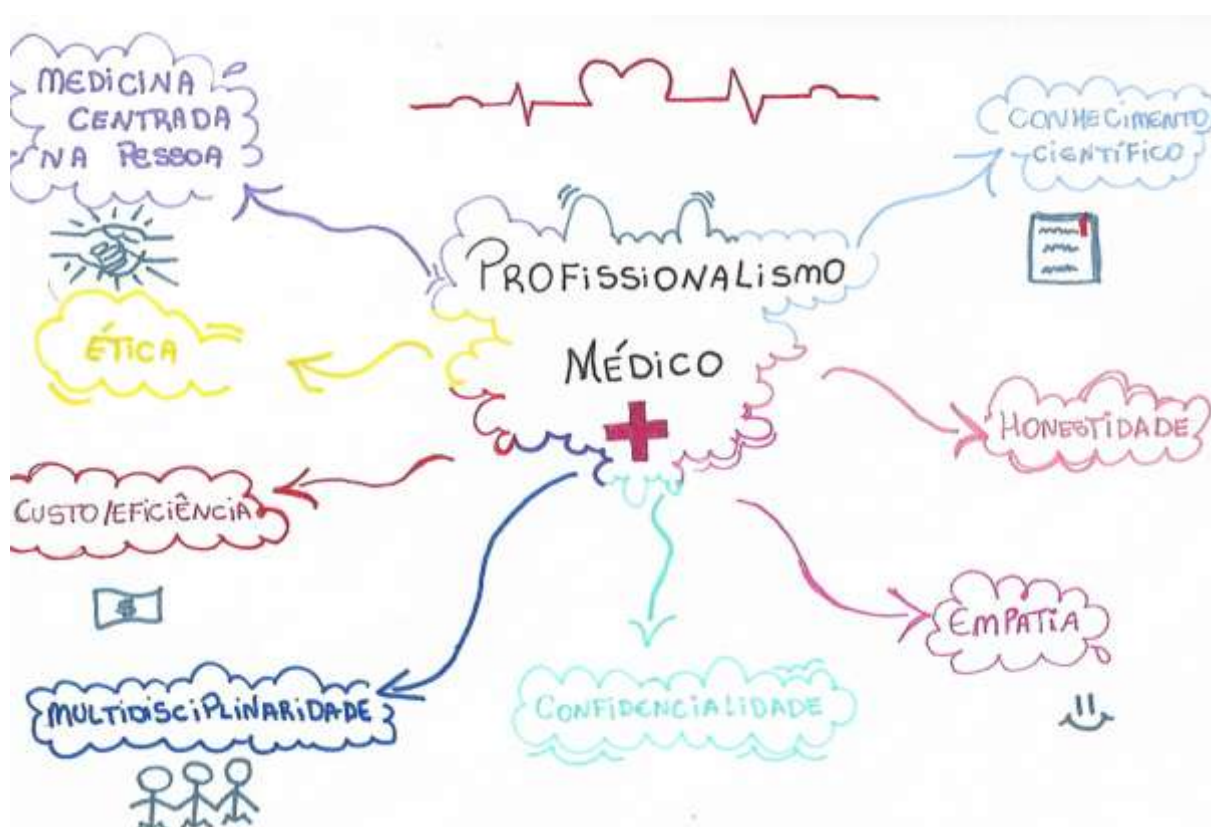 MEDICINA
CENTRADA
NA PESSOA
CONHECIMENTO
CIENTÍFICO
PROFISSIONALISMO
MÉDICO
ÉTICA
HONESTIDADE
CUSTO/EFICIÊNCIA
$
EMPATIA
MULTIDISCIPLINARIDADE
CONFIDENCIALIDADE